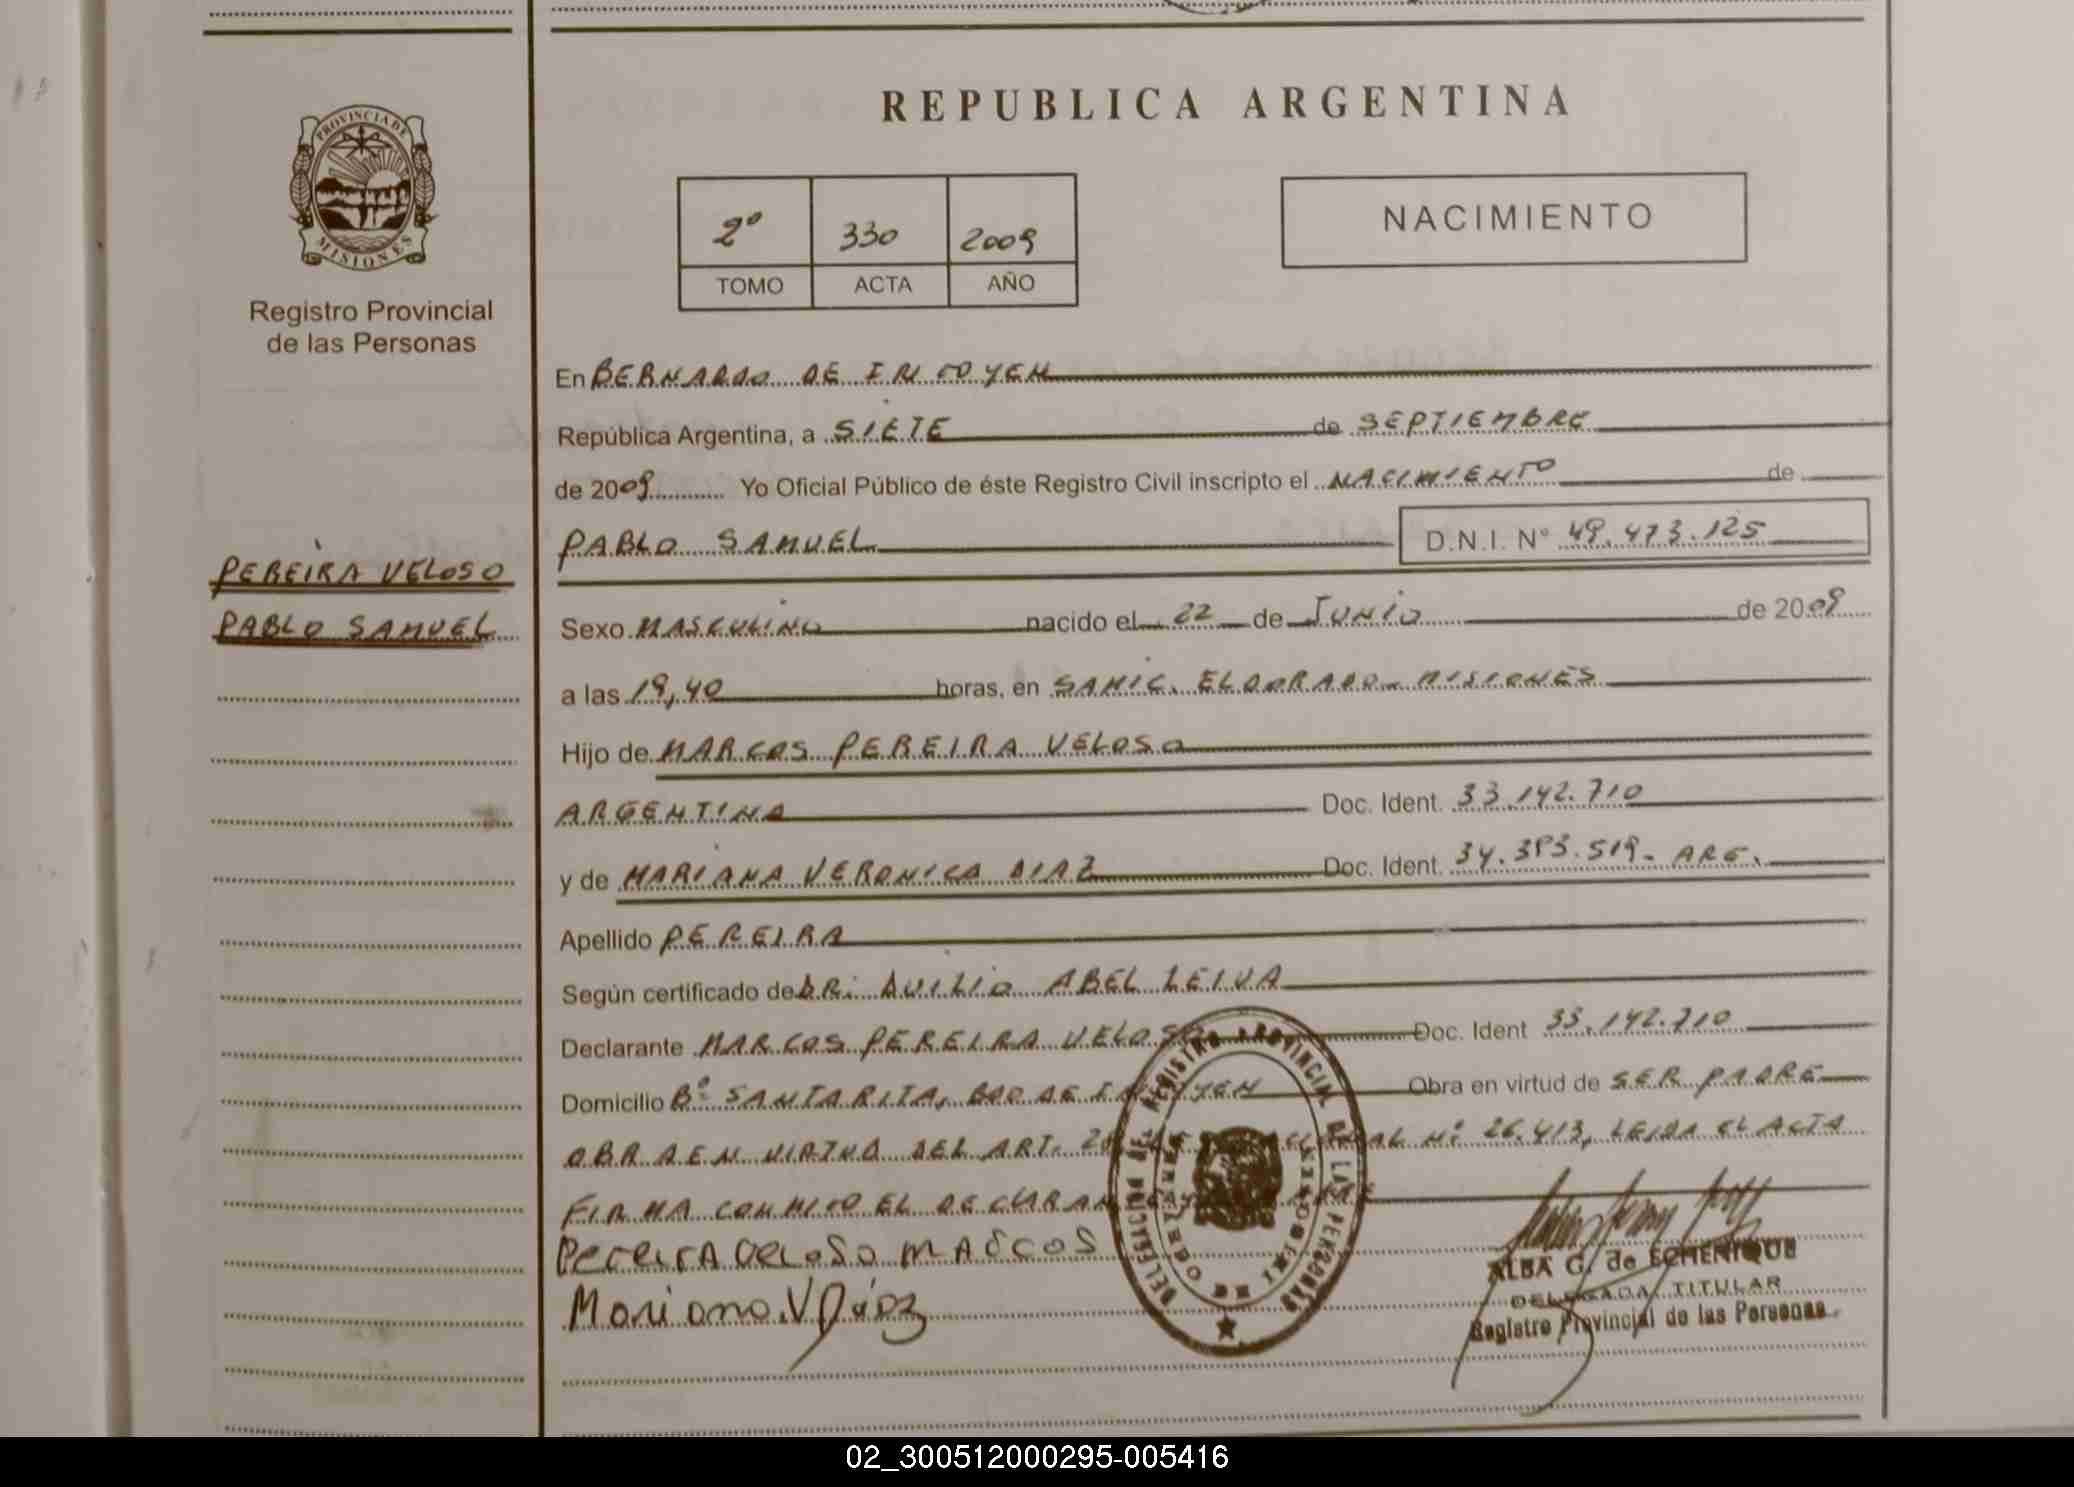 REPUBLICA ARGENTINA
PROVINCIA DE
MISIONES
Registro Provincial
de las Personas
2º 330 2009
TOMO ACTA AÑO
NACIMIENTO
PEREIRA VELOSO
PABLO SAMUEL
En BERNARDO DE IRIGOYEN
República Argentina, a SIETE de SEPTIEMBRE
de 2009 Yo Oficial Público de éste Registro Civil inscripto el NACIMIENTO de
PABLO SAMUEL D.N.I. Nº 49.473.125
Sexo MASCULINO nacido el 22 de JUNIO de 2009
a las 19,40 horas, en SAMIC. ELDORADO - MISIONES
Hijo de MARCOS PEREIRA VELOSO
ARGENTINA Doc. Ident. 33.142.710
y de MARIANA VERONICA DIAZ Doc. Ident. 34.393.519- ARG.
Apellido PEREIRA
Según certificado de DR: DUILIO ABEL LEIVA
Declarante MARCOS PEREIRA VELOSO Doc. Ident 33.142.710
Domicilio Bº SANTA RITA, BDO DE IRIGOYEN Obra en virtud de SER PADRE
OBRA EN VIRTUD DEL ART. Nº 26.413, LEIDA EL ACTA
FIRMA CONMIGO EL DECLARANTE
PereirA VeLoSo MARCOS
Mariana V Díaz
DELEGACION DEL REGISTRO PROVINCIAL DE LAS PERSONAS
ALBA G. de ECHENIQUE
DELEGADA TITULAR
Registro Provincial de las Personas
02_300512000295-005416